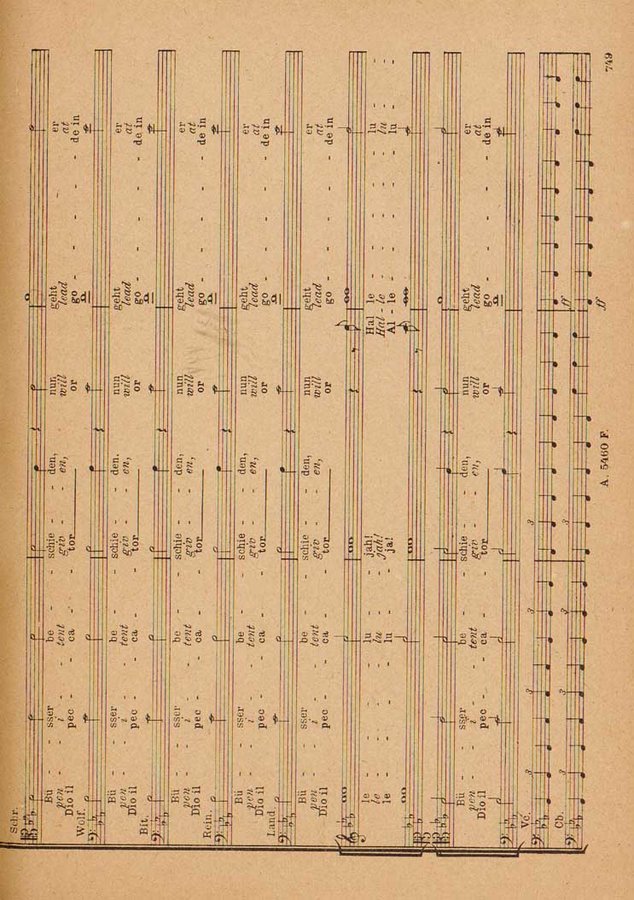 Schr.
Bü - - - sser - - be - - schie - - den, nun geht - - - - er
pen - - - i - - tent - - giv - - en, will lead - - - - at
Dio il - - pec - - ca - - tor or go - - - - de in
Wolf.
Bü - - - sser - - be - - schie - - den, nun geht - - - - er
pen - - - i - - tent - - giv - - en, will lead - - - - at
Dio il - - pec - - ca - - tor or go - - - - de in
Bit.
Bü - - - sser - - be - - schie - - den, nun geht - - - - er
pen - - - i - - tent - - giv - - en, will lead - - - - at
Dio il - - pec - - ca - - tor or go - - - - de in
Rein.
Bü - - - sser - - be - - schie - - den, nun geht - - - - er
pen - - - i - - tent - - giv - - en, will lead - - - - at
Dio il - - pec - - ca - - tor or go - - - - de in
Land.
Bü - - - sser - - be - - schie - - den, nun geht - - - - er
pen - - - i - - tent - - giv - - en, will lead - - - - at
Dio il - - pec - - ca - - tor or go - - - - de in
le - - - - - lu - - jah! Hal - le - - - - lu - -
le - - - - - lu - - jah! Hal - le - - - - lu - -
le - - - - - lu - - ja! Al - le - - - - lu - -
Bü - - - sser - - be - - schie - - den, nun geht - - - - er
pen - - - i - - tent - - giv - - en, will lead - - - - at
Dio il - - pec - - ca - - tor or go - - - - de in
Vc.
3 3 3 3
ff
Cb.
3 3 3 3
ff
A. 5460 F.
749